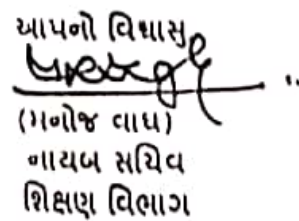 આપનો વિશ્વાસુ
(મનોજ વાઘ)
નાયબ સચિવ
શિક્ષણ વિભાગ